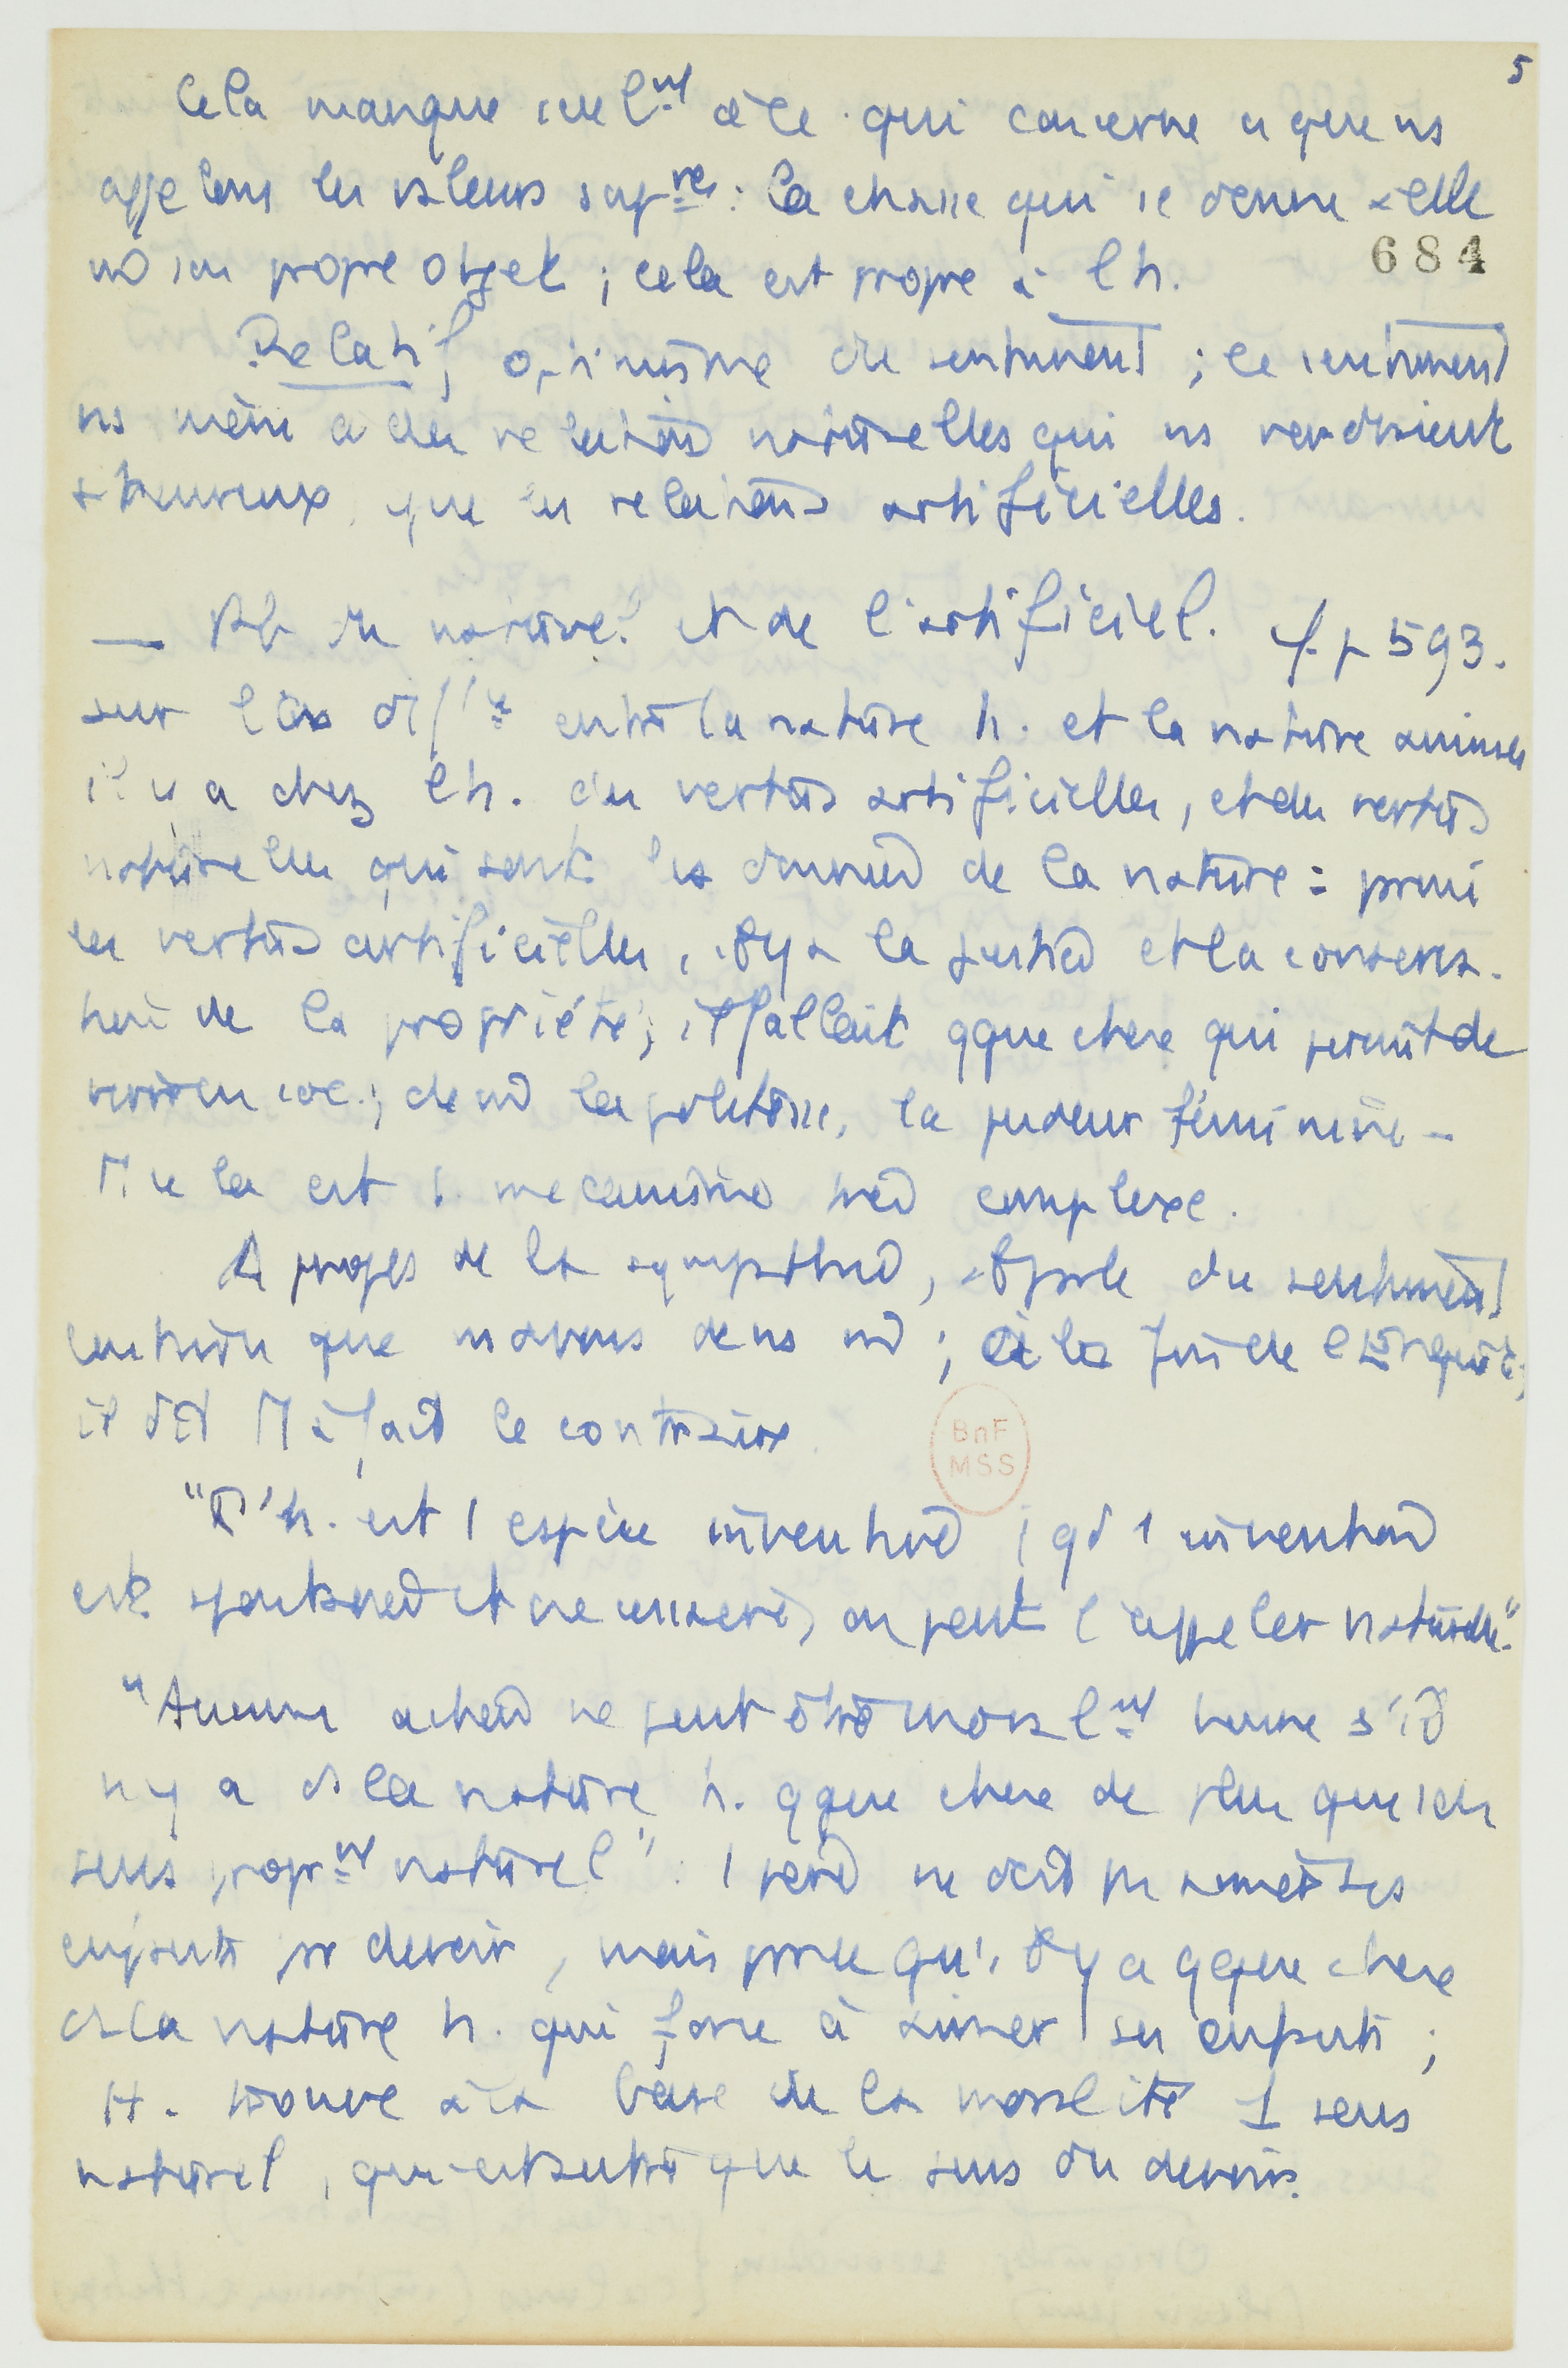 5
Cela manque seulnt à ce qui concerne ce que ns
appelons les valeurs supres : la chasse qui se donne à elle
m̂ son propre objet ; cela est propre à l'h.
684
Relatif optimisme du sentiment ; le sentiment
ns mène à des relations naturelles qui ns rendraient
+ heureux que les relations artificielles.
— Pb du naturel et de l'artificiel. cf. p 593.
sur les diffces entre la nature h. et la nature animale
il y a chez l'h. des vertus artificielles, et des vertus
naturelles qui sont les données de la nature : parmi
les vertus artificielles, il y a la justice et la conserva-
tion de la propriété ; il fallait qque chose qui permît de
vivre en soc. ; de m̂ la politesse, la pudeur féminine —
Tt cela est 1 mécanisme très complexe.
A propos de la sympathie, il parle du sentiment
que ns avons de ns m̂ ; à la fin de l'Enquête,
il dit tt à fait le contraire
"L'h. est 1 espèce inventive ; qd 1 invention
est spontanée et nécessaire, on peut l'appeler naturelle."
"Aucune action ne peut être moralnt bonne s'il
n'y a ds la nature h. qque chose de plus que ce
sens proprnt naturel" : 1 père ne doit pas aimer ses
enfants par devoir, mais parce qu'il y a qque chose
ds la nature h. qui force à aimer ses enfants ;
H. trouve à la base de la moralité 1 sens
naturel, qui est autre que le sens du devoir.
BnF
MSS